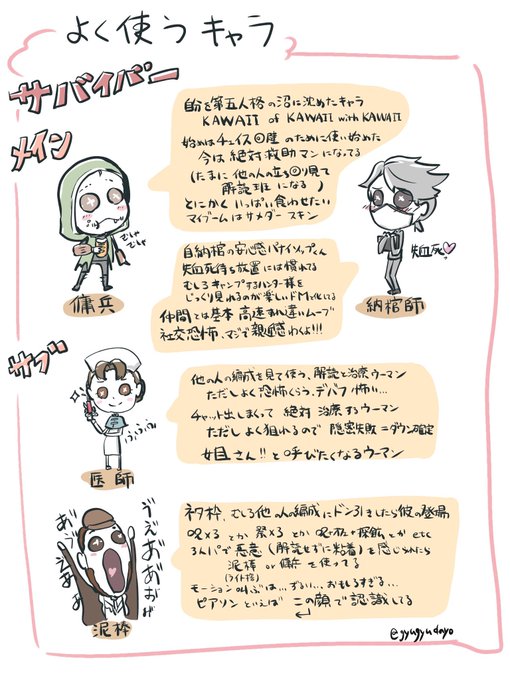 よく使うキャラ
サバイバー
メイン
自分を第五人格の沼に沈めたキャラ
KAWAII of KAWAII with KAWAII
始めはチェイス練習のために使い始めた
今は絶対救助マンになってる
(たまに他の人の立ち回り見て
解読班になる)
とにかくいっぱい食わせたい
マイブームはサメダースキン
むしゃ
むしゃ
傭兵
自納棺の安心感パナイソップくん
失血死待ち放置には慣れてる
むしろキャンプするハンター様を
じっくり見れるのが楽しいドM化いる
仲間とは基本高速すれ違いムーブ
社交恐怖、マジで親近感わくよ!!!
失血死♡
納棺師
サブ
他の人の編成を見て使う、解読と治療ウーマン
ただしよく恐怖くらう、デバフ怖い…
チャット出しまくって絶対治療するウーマン
ただしよく狙れるので隠密失敗=ダウン確定
姐さん!!と呼びたくなるウーマン
ふふふ
医師
ネタ枠、むしろ他人の編成にドン引きしたら彼の登場
呪×3とか祭×3とか
とかetc
3人パで悪意(解読せずに粘着)を感じ
たら
泥棒or傭兵を使ってる
(ライト持)
モーション叫ぶは…ずるい…おもしろすぎる…
ピアソンといえばこの顔で認識してる
泥棒
@gyugyudayo